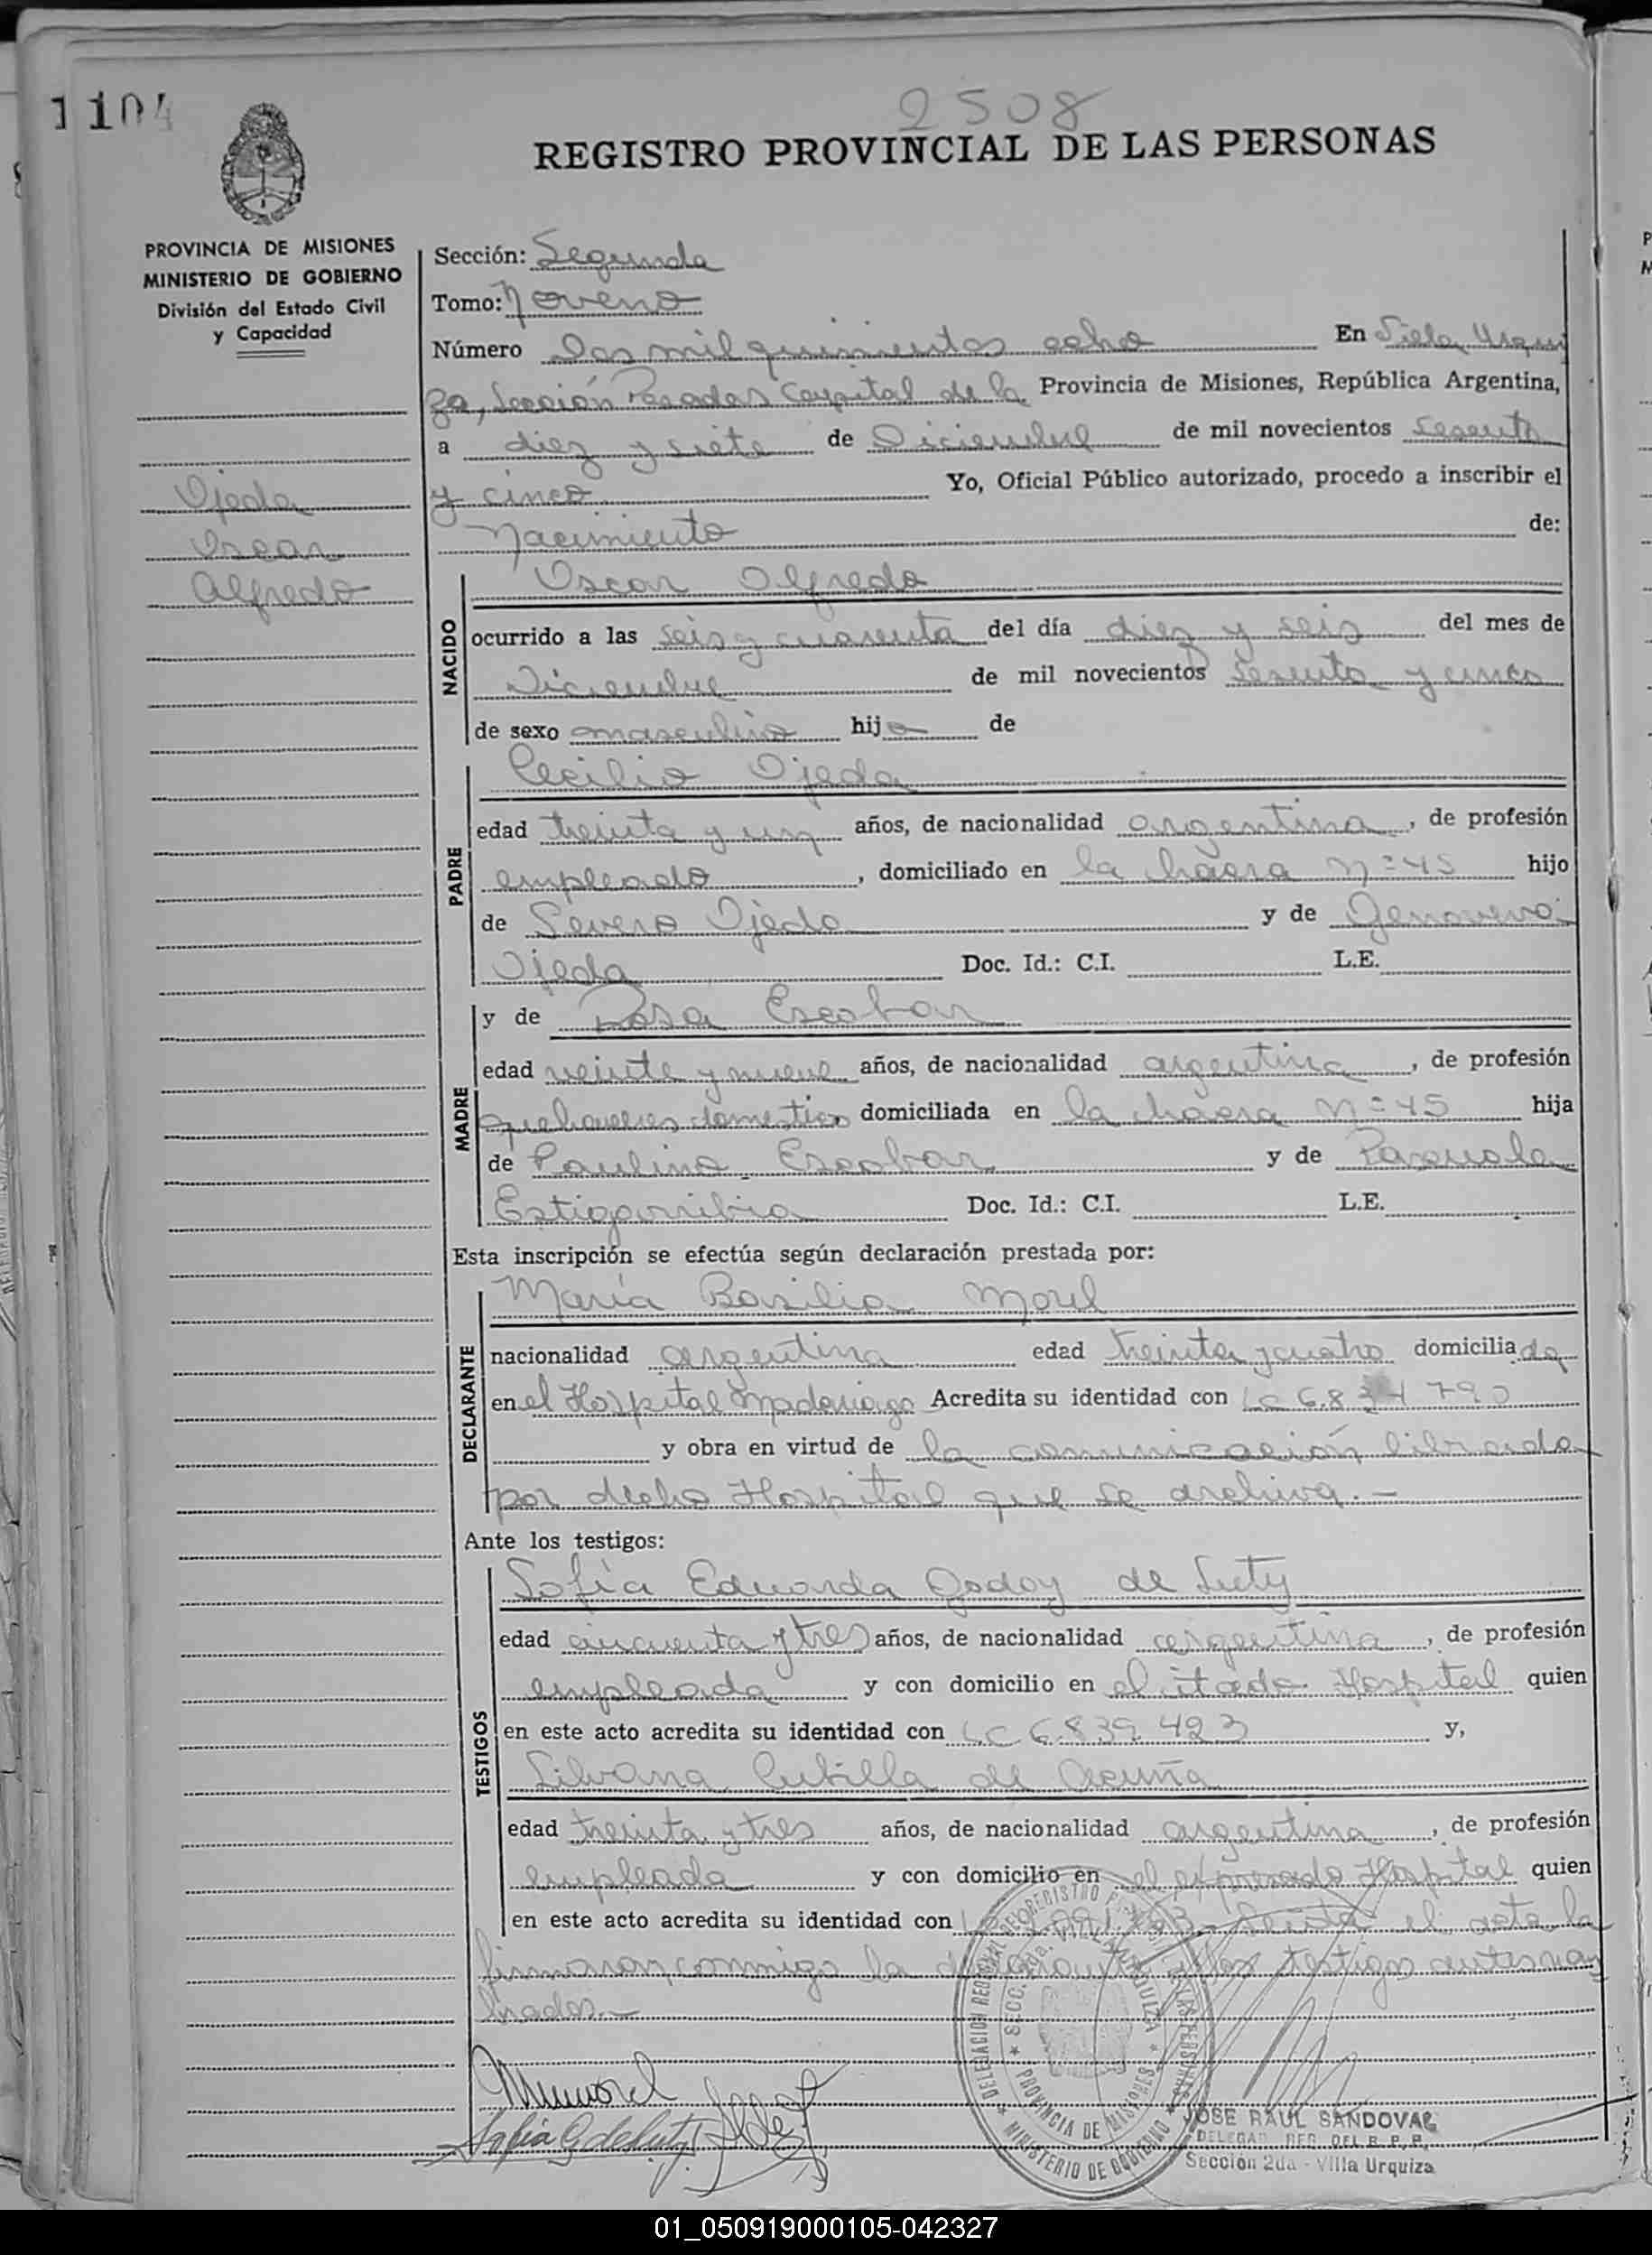 1104
2508
REGISTRO PROVINCIAL DE LAS PERSONAS
PROVINCIA DE MISIONES
MINISTERIO DE GOBIERNO
División del Estado Civil
y Capacidad
Ojeda
Oscar
Alfredo
Sección: Segunda
Tomo: Noveno
Número Dos mil quinientos ocho En Villa Urqui
za, Sección Posadas Capital de la Provincia de Misiones, República Argentina,
a diez y siete de Diciembre de mil novecientos sesenta
y cinco Yo, Oficial Público autorizado, procedo a inscribir el
Nacimiento de:
NACIDO
Oscar Alfredo
ocurrido a las seis y cuarenta del día diez y seis del mes de
Diciembre de mil novecientos sesenta y cinco
de sexo masculino hijo de
PADRE
Cecilio Ojeda
edad treinta y un años, de nacionalidad argentina, de profesión
empleado, domiciliado en la chacra Nº 45 hijo
de Severo Ojeda y de Genoveva
Ojeda Doc. Id.: C.I. L.E.
MADRE
y de Rosa Escobar
edad veinte y nueve años, de nacionalidad argentina, de profesión
quehaceres domestico domiciliada en la chacra Nº 45 hija
de Paulino Escobar y de Pascuala
Estigarribia Doc. Id.: C.I. L.E.
Esta inscripción se efectúa según declaración prestada por:
DECLARANTE
María Basilia Morel
nacionalidad argentina edad treinta y cuatro domiciliada
en el Hospital Madariaga Acredita su identidad con LC
y obra en virtud de la comunicación librada
por dicho Hospital que se archiva.-
Ante los testigos:
TESTIGOS
Sofía Eduarda Godoy de Luty
edad cincuenta y tres años, de nacionalidad argentina, de profesión
empleada y con domicilio en el citado Hospital quien
en este acto acredita su identidad con LC 6.839.423 y,
Silvana Cubilla de Acuña
edad treinta y tres años, de nacionalidad argentina, de profesión
empleada y con domicilio en el expresado Hospital quien
en este acto acredita su identidad con el acta la
firmaron conmigo la declarante y los testigos antesnom
brados.-
MMorel
Sofía G de Luty
DELEGACION REGIONAL DEL REGISTRO
SECC. 2da. VILLA URQUIZA
PROVINCIA DE MISIONES
MINISTERIO DE GOBIERNO
JOSE RAUL SANDOVAL
DELEGAD REG. DEL R. P. P.
Sección 2da - Villa Urquiza
01_050919000105-042327